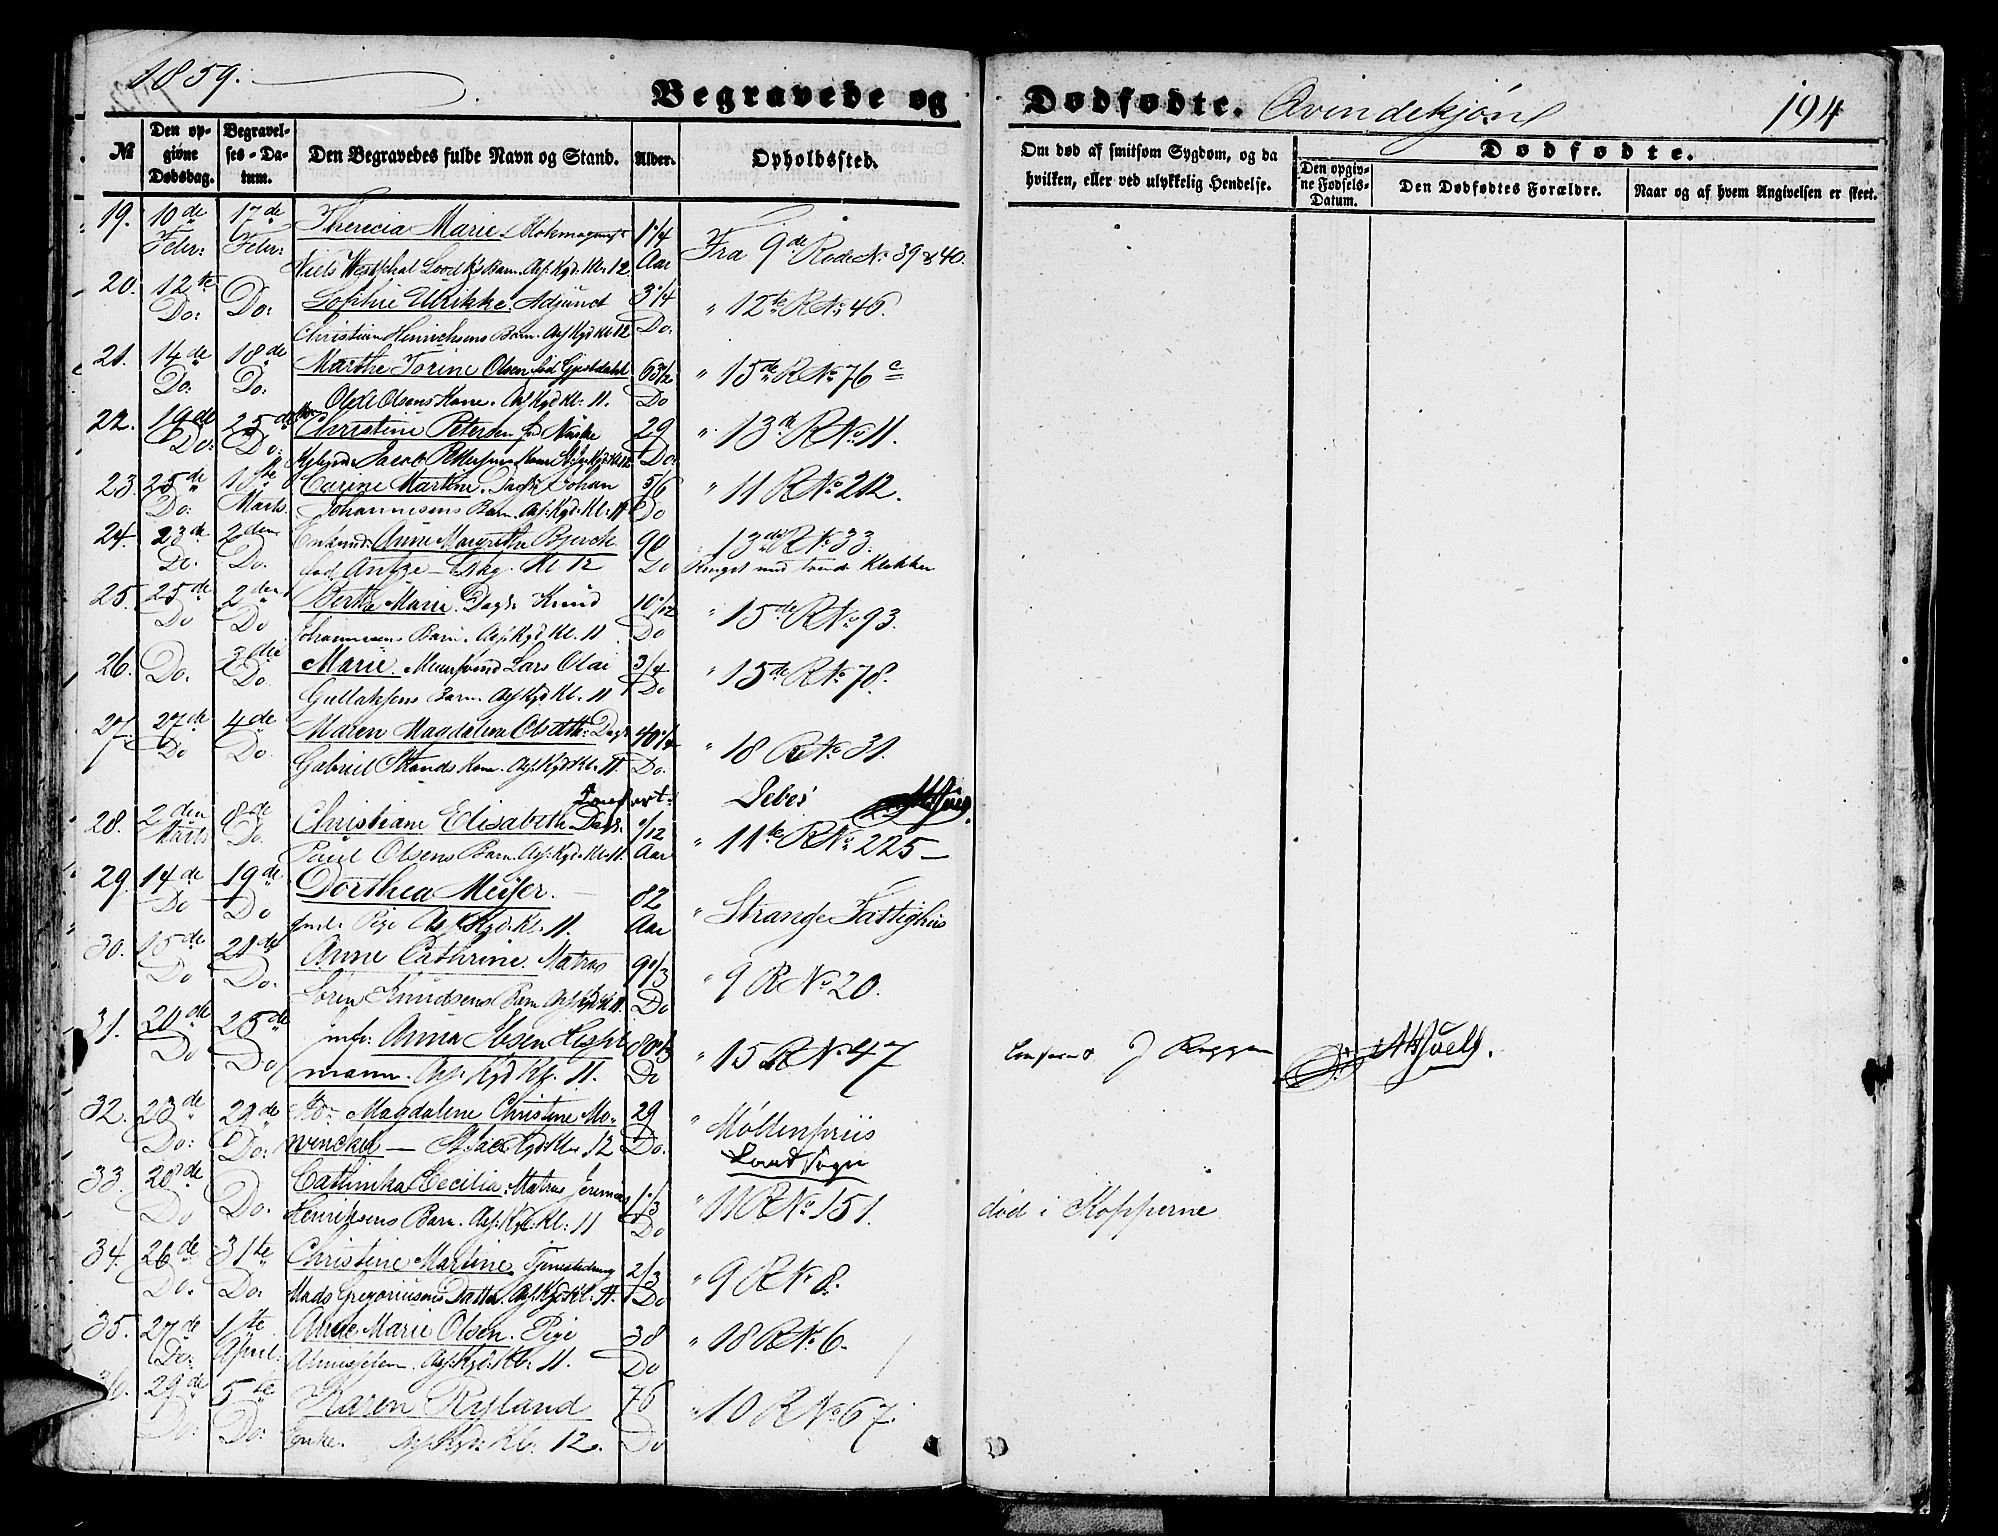 1859.
Begravede og Dødfødte. Qvindekjøn 194
№
Den opgivne Dødsdag.
Begravelses-Datum.
Den Begravedes fulde Navn og Stand.
Alder.
Opholdssted.
Om død af smitsom Sygdom, og da hvilken, eller ved ulykkelig Hendelse.
Dødfødte.
Den opgivne Fødsels-Datum.
Den Dødfødtes Forældre.
Naar og af hvem Angivelsen er skeet.
19. 10de 17de Therecia Marie 1 1/4 Fra 9de Rode No 39 & 40.
Febr: Febr: Niels Westphal Barn. Asf. Kgd. Kl. 12. Aar
20. 12te Do: Sophie Ulrikke. Adjunct 3 1/4 " 12te R No 46.
Do: Christian Henrichsens Barn. Asf Kgd Kl 12 Do:
21. 14de 18de Marthe Torine Olsen fød 63 1/2 " 15de R No 76 c
Do: Do: Ole Olsens Kone. Asf Kgd Kl: 11. Do
22. 19de 25de Christine Petersen fød 29 " 13de R No 11.
Do: Do: Jacob Do:
23. 25de 1ste Carine Martine. Dagk Johan 5/6 " 11 R No 212.
Do: Marts Johannesens Barn. Asf: Kgd: Kl: 11 Do
24. 23de 2den Enkemd: Anne Margrethe Bjerck 90 " 13de R No 33.
Do: Do: fød Kl 12 Do Ringet med Klokker
25. 25de 2den Berthe Marie. Dagk Knud 10/12 " 15de R No 93.
Do Do Johannesens Barn. Asf: Kgd Kl. 11 Do
26. Do. 3die Marie. Lars Olai 3/4 " 15de R No 78.
Do Gullaksens Barn. Asf Kgd Kl. 11 Do
27. 27de 4de Maren Magdalena Olsdtr: Dagk 40 " 18 R No 31.
Do Do. Gabriel Kone. Asf: Kgd: Kl: 11 Do.
28. 2den 8de Christiane Elisabeth Dagk. /12 " 11te R No 225 —
Marts Do. Paul Olsens Barn. Asf: Kgd: Kl: 11. Aar
29. 14de 19de Dorthea Meyer. 82 " Strandg Fattighus
Do Do Pige Asf Kgd: Kl: 11. Aar
30. 15de 21de Anne Cathrine. Matros 9/3 " 9 R No 20.
Do Do. Sören Knudsens Barn Asf Kgd Kl 11. Do
31. 20de 25de Jmfr: Anna Ibsen 80 " 15 R No 47 J
Do Do mann. Asf: Kgd Kl. 11. Do
32. 23de 29de Magdalene Christine Mo- 29 " Möllenpriis
Do: Do: winckel — Kgd: Kl. 12 Do. Land Sogn
33. 28de Cathinka Cecilia. Matros Jeremias 1/3 " 11 R No 151. död i Kopperne
Do Do. Henriksens Barn. Asf: Kgd: Kl: 11 Do
34. 26de 31te Christine Martine. Tjenestedreng 2/3 " 9 R No 8.
Do. Do. Mads Gregoriusens Datter. Asf Kgd Kl: 11. Do
35. 27de 1ste Anne Marie Olsen. Pige 38 " 18 R No 6.
Do: April. Almisselem. Asf: Kgd: Kl: 11. Do
36. 29de 5te Karen Ryland 76 " 10 R No 67.
Do: Do: Enke. Asf Kgd: Kl: 12. Do